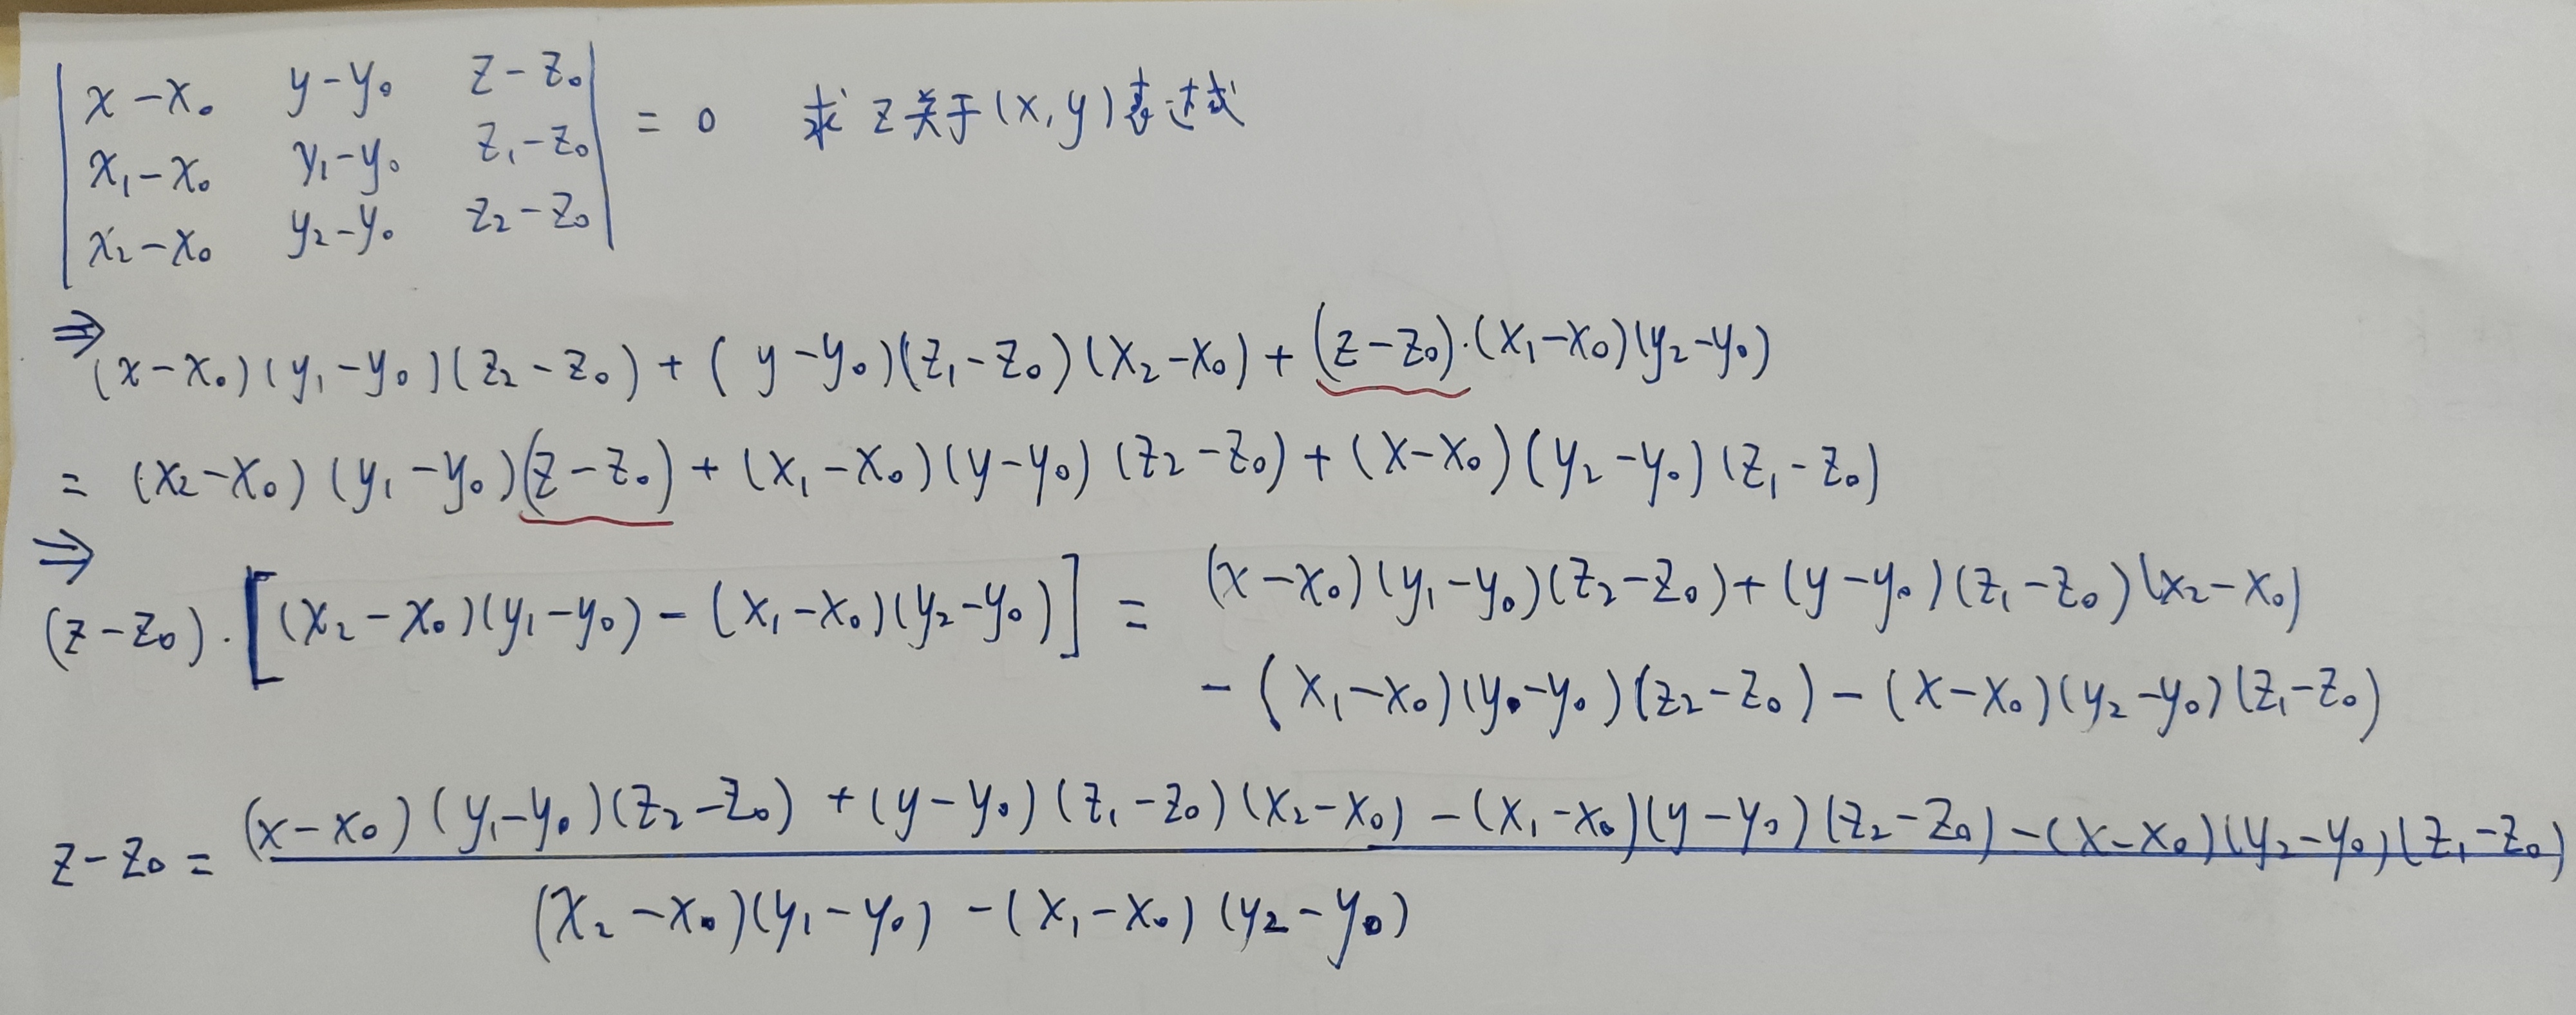 | x-x₀ y-y₀ z-z₀ |
| x₁-x₀ y₁-y₀ z₁-z₀ | = 0 求z关于(x,y)表达式
| x₂-x₀ y₂-y₀ z₂-z₀ |
⇒ (x-x₀)(y₁-y₀)(z₂-z₀)+(y-y₀)(z₁-z₀)(x₂-x₀)+(z-z₀)·(x₁-x₀)(y₂-y₀)
= (x₂-x₀)(y₁-y₀)(z-z₀)+(x₁-x₀)(y-y₀)(z₂-z₀)+(x-x₀)(y₂-y₀)(z₁-z₀)
⇒
(z-z₀)·[(x₂-x₀)(y₁-y₀)-(x₁-x₀)(y₂-y₀)] = (x-x₀)(y₁-y₀)(z₂-z₀)+(y-y₀)(z₁-z₀)(x₂-x₀)
-(x₁-x₀)(y₀-y₀)(z₂-z₀)-(x-x₀)(y₂-y₀)(z₁-z₀)
z-z₀ = (x-x₀)(y₁-y₀)(z₂-z₀)+(y-y₀)(z₁-z₀)(x₂-x₀)-(x₁-x₀)(y-y₀)(z₂-z₀)-(x-x₀)(y₂-y₀)(z₁-z₀)
(x₂-x₀)(y₁-y₀)-(x₁-x₀)(y₂-y₀)